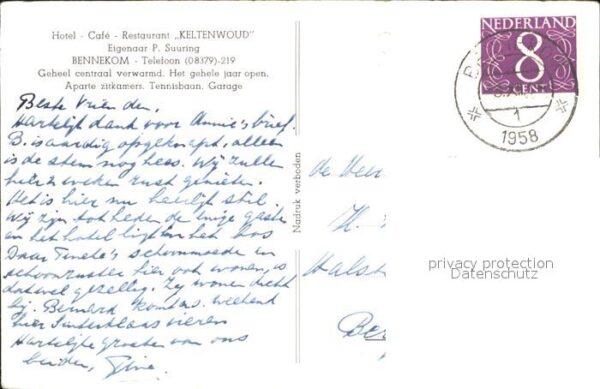 Hotel - Café - Restaurant „KELTENWOUD"
Eigenaar P. Suuring
BENNEKOM - Telefoon (08379)-219
Geheel centraal verwarmd. Het gehele jaar open.
Aparte zitkamers. Tennisbaan. Garage
Beste Vrienden.
Hartelijk dank voor Annie's brief.
B. is aardig opgeknapt, alleen
is de stem nog hees. Wij zullen
hier 2 weken rust genieten.
Het is hier nu heerlijk stil.
Wij zijn tot heden de enige gasten
en het hotel ligt in het bos
Daar schoonmoeder en
schoonzuster hier ook wonen, is
dat wel gezellig. Zij wonen dicht
bij. Bernard komt a.s. weekend
hier Sinterklaas vieren
Hartelijke groeten van ons
beiden,
Nadruk verboden
NEDERLAND
8
CENT
1
1958
de Heer
H.
Halst
Be
privacy protection
Datenschutz